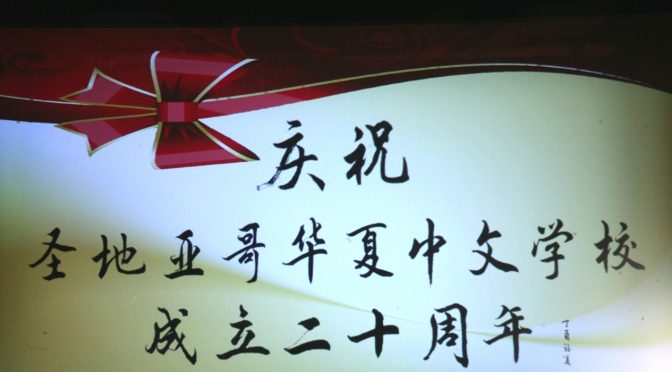 庆祝
圣地亚哥华夏中文学校
成立二十周年
丁酉孙夏